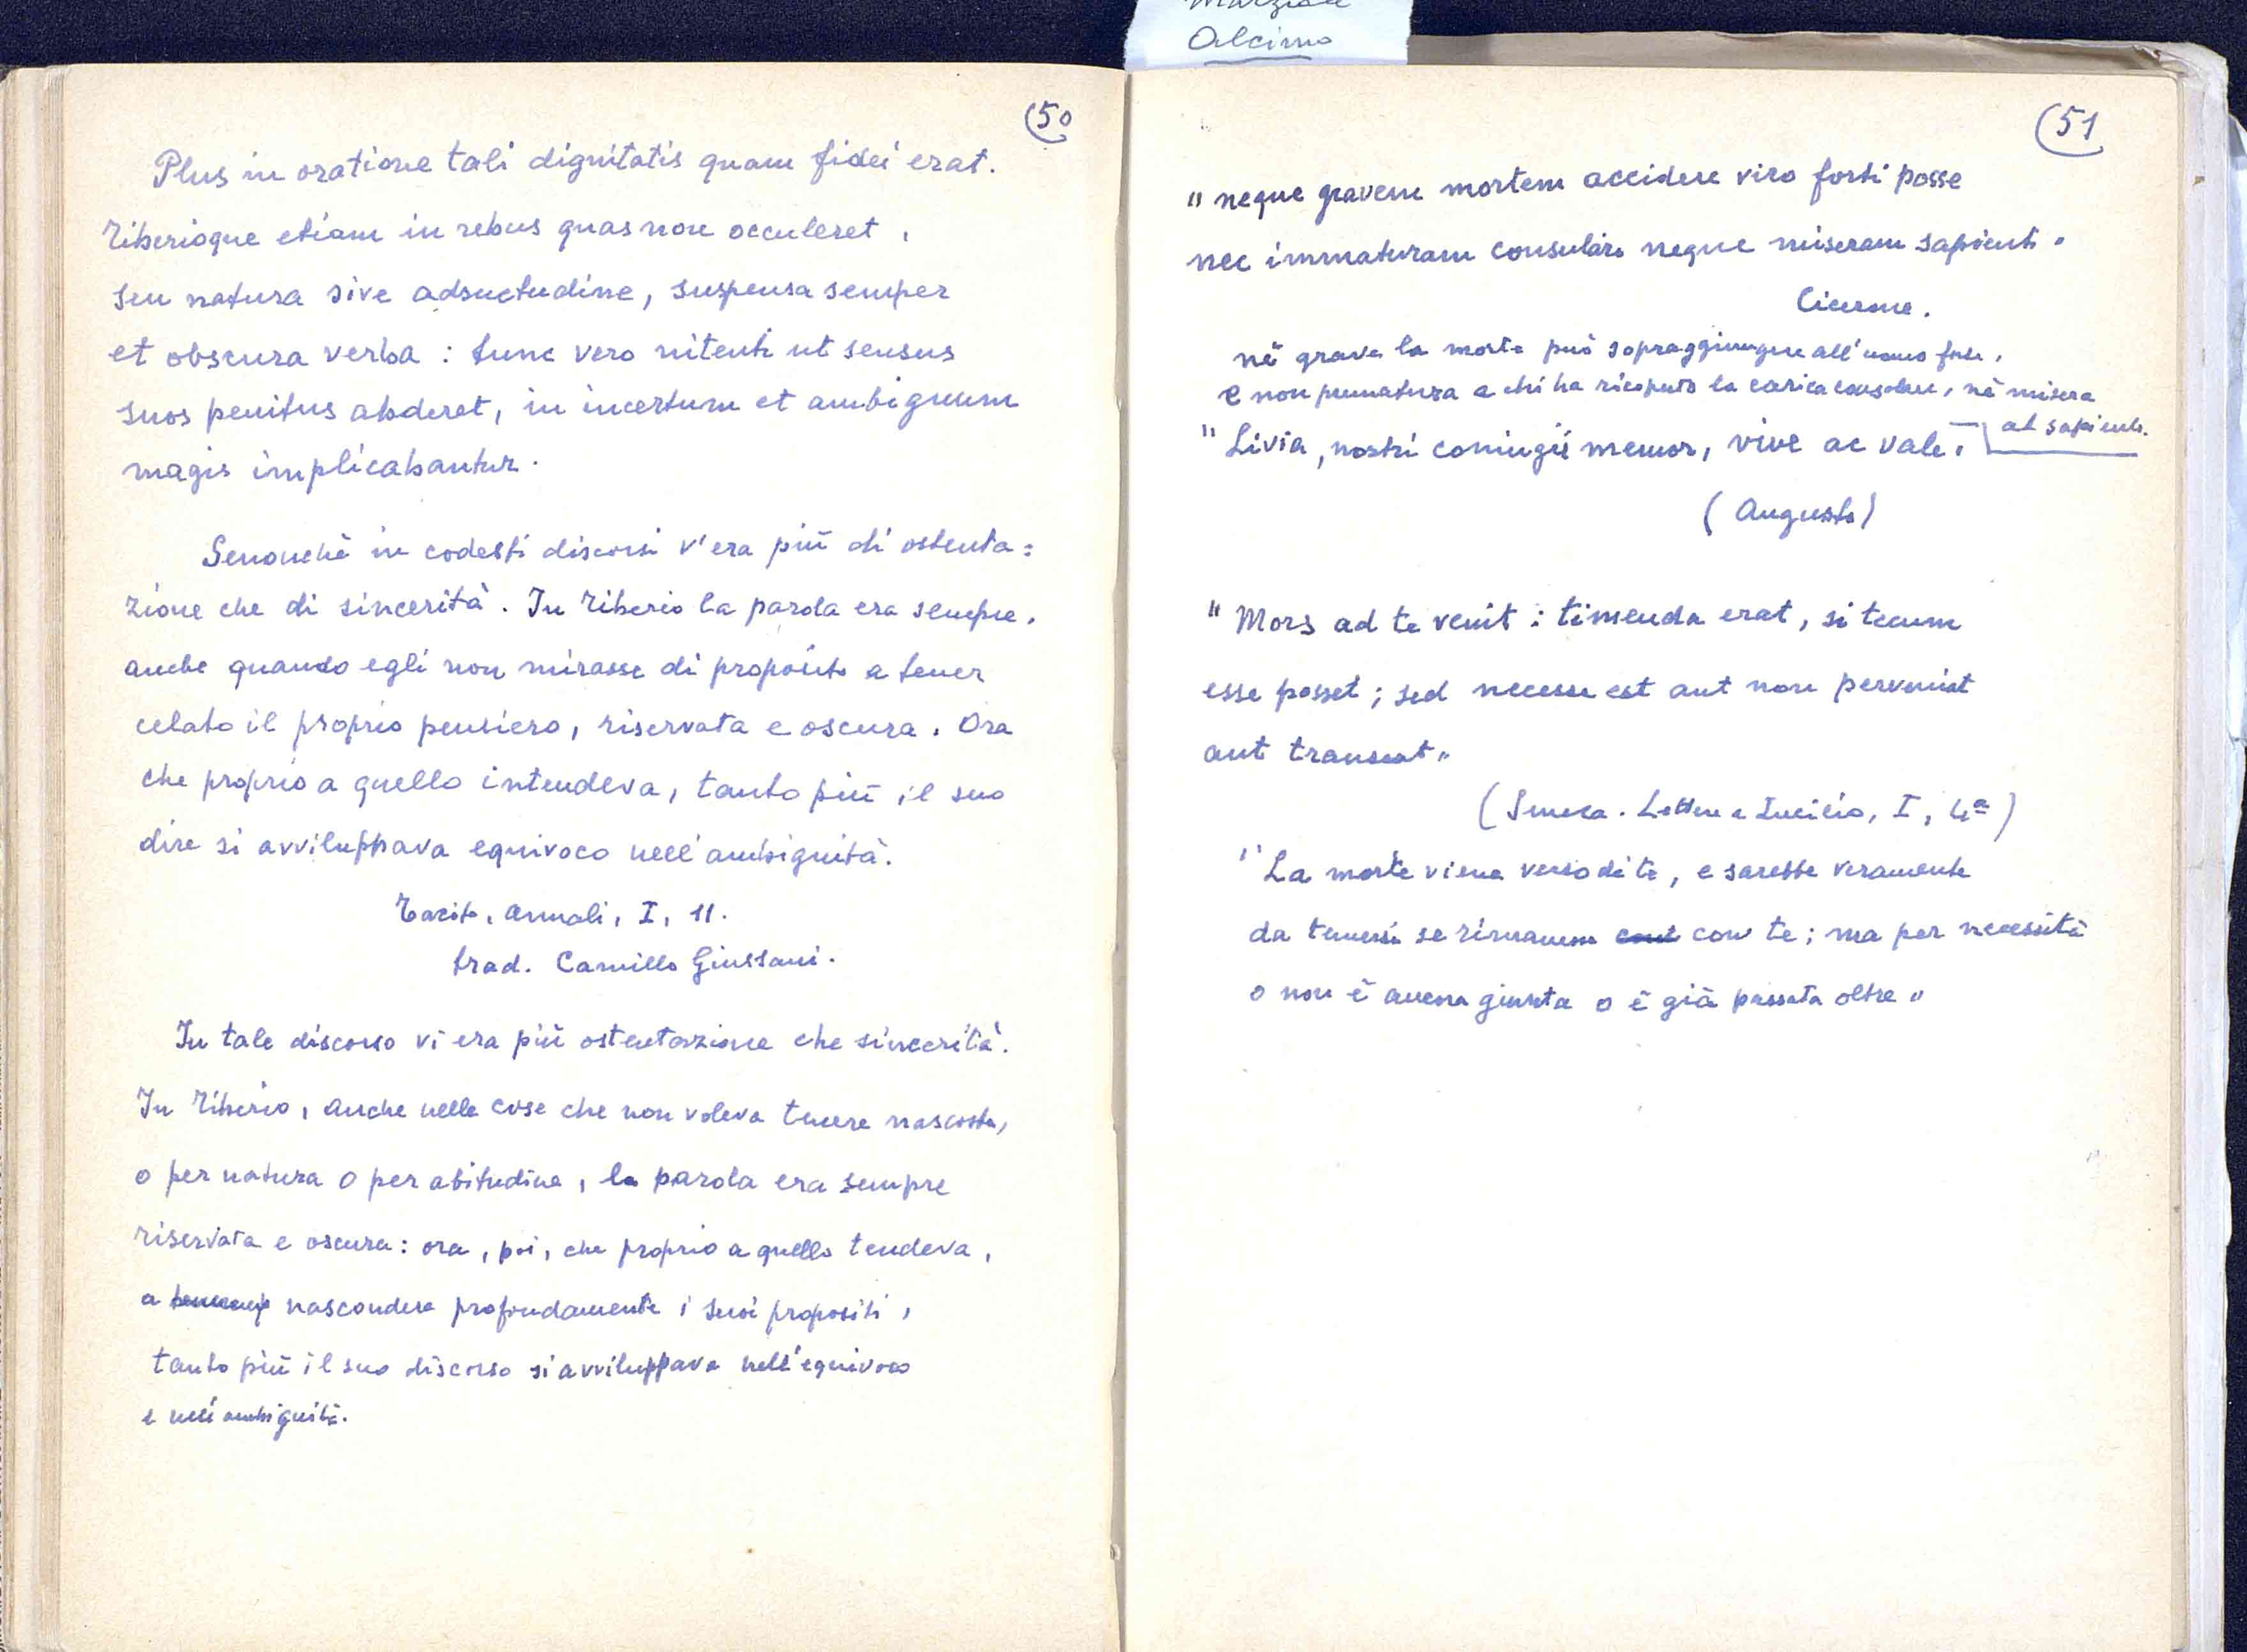 Alcimo
50
Plus in oratione tali dignitatis quam fidei erat.
Tiberioque etiam in rebus quas non occuleret,
seu natura sive adsuetudine, suspensa semper
et obscura verba : tunc vero nitenti ut sensus
suos penitus abderet, in incertum et ambiguum
magis implicabantur.
Senonchè in codesti discorsi v'era più di ostenta=
zione che di sincerità. In Tiberio la parola era sempre,
anche quando egli non mirasse di proposito a tener
celato il proprio pensiero, riservata e oscura. Ora
che proprio a quello intendeva, tanto più il suo
dire si avviluppava equivoco nell'ambiguità.
Tacito, Annali, I, 11.
trad. Camillo Giussani.
In tale discorso vi era più ostentazione che sincerità.
In Tiberio, anche nelle cose che non voleva tenere nascoste,
o per natura o per abitudine, la parola era sempre
riservata e oscura: ora, poi, che proprio a quello tendeva,
a nascondere profondamente i suoi propositi,
tanto più il suo discorso si avviluppava nell'equivoco
e nell'ambiguità.
51
" neque gravem mortem accidere viro forti posse
nec immaturam consulari neque miseram sapienti "
Cicerone.
nè grave la morte può sopraggiungere all'uomo forte,
e non prematura a chi ha ricoperto la carica consolare, nè misera
al sapiente.
" Livia, nostri coniugii memor, vive ac vale "
(Augusto)
" Mors ad te venit : timenda erat, si tecum
esse posset ; sed necesse est aut non perveniat
aut transeat "
(Seneca. Lettere a Lucilio, I, 4ª)
" La morte viene verso di te, e sarebbe veramente
da temersi se rimanesse con te; ma per necessità
o non è ancora giunta o è già passata oltre "